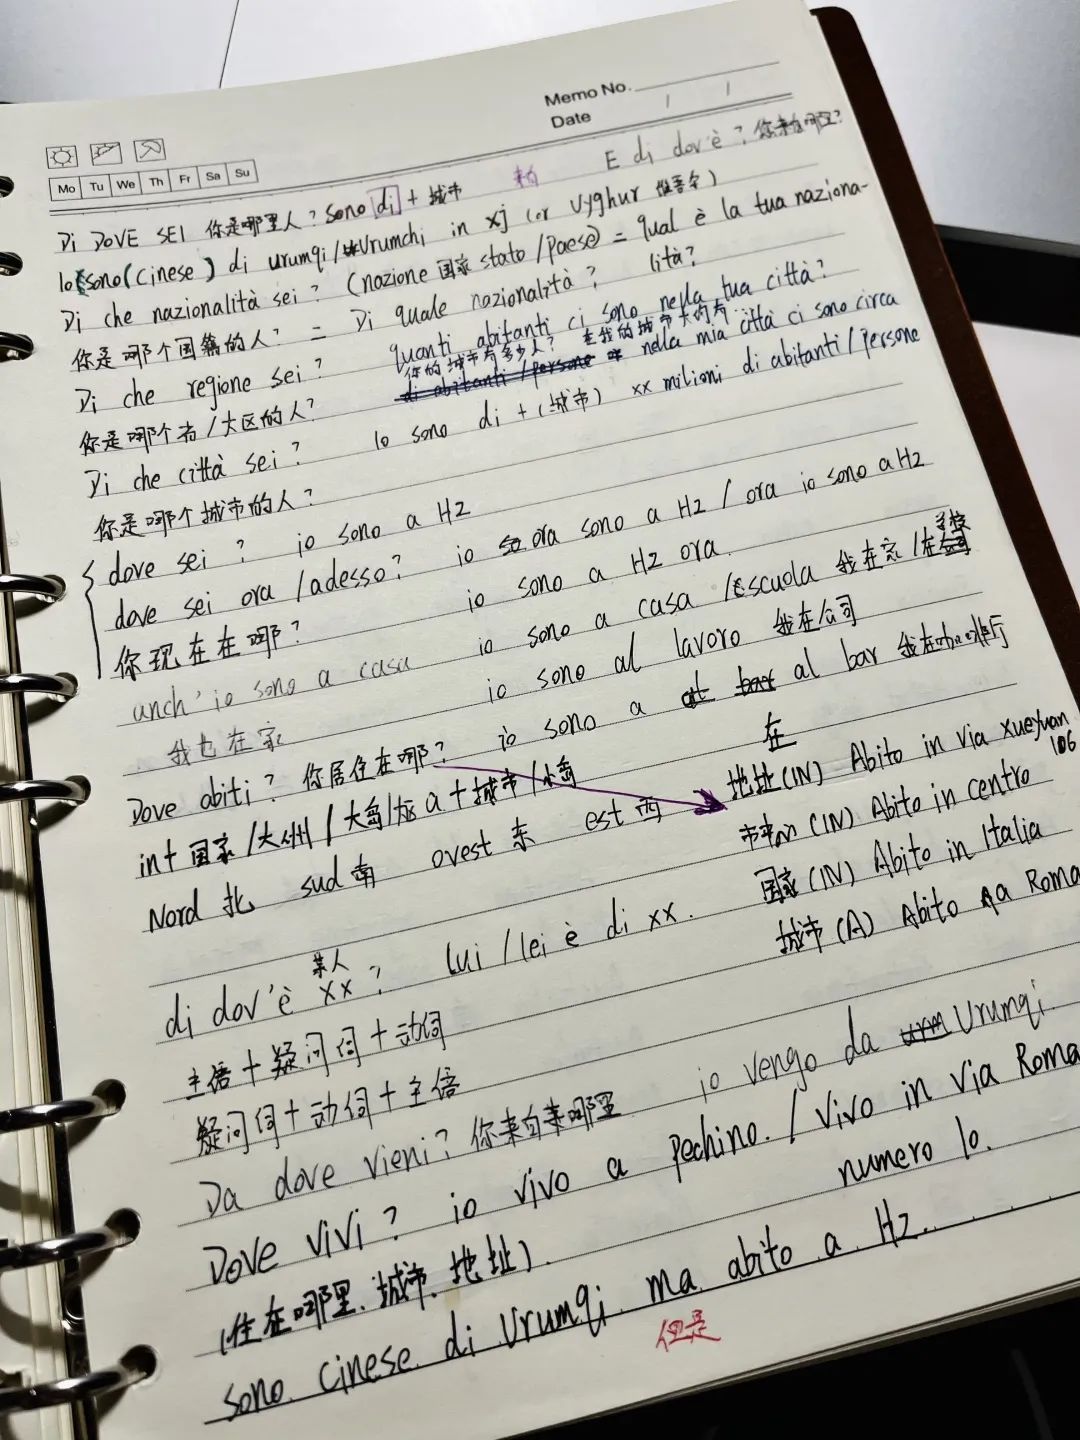 Memo No.
Date / /
Mo Tu We Th Fr Sa Su
E di dov'è? 你来自哪里?
Di DOVE SEI 你是哪里人? Sono di + 城市
Io sono (Cinese) di urumqi/Urumchi in xj (or Uyghur 维吾尔)
Di che nazionalità sei? (nazione 国家 stato/paese) = qual è la tua naziona-
lità?
你是哪个国籍的人? = Di quale nazionalità?
quanti abitanti ci sono nella tua città?
你的城市有多少人? 在我的城市大约有
Di che regione sei? di abitanti/persone nella mia città ci sono circa
你是哪个省/大区的人? xx milioni di abitanti/persone
Di che città sei? Io sono di + (城市)
你是哪个城市的人?
dove sei? io sono a HZ
dove sei ora/adesso? io ora sono a HZ / ora io sono a HZ
你现在在哪? io sono a HZ ora.
anch'io sono a casa io sono a casa /scuola 我在家/在学校
我也在家 io sono al lavoro 我在公司
io sono a al bar 我在
Dove abiti? 你居住在哪? 在
地址(IN) Abito in via xueyuan
106
in+国家/大州/大岛/ a+城市/小岛
(IN) Abito in centro
Nord 北 sud 南 ovest 东 est 西
国家(IN) Abito in Italia
城市(A) Abito a Roma
某人
di dov'è xx? lui/lei è di xx.
主语+疑问词+动词
疑问词+动词+主语
Da dove vieni? 你来自哪里 io vengo da Urumqi.
Dove vivi? io vivo a Pechino. / Vivo in via Roma
numero 10.
(住在哪里、城市、地址).
sono cinese di Urumqi ma abito a HZ.
但是